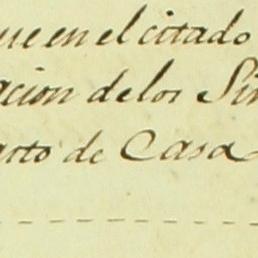 que en el citado
acion de los Sin
arto de Casa